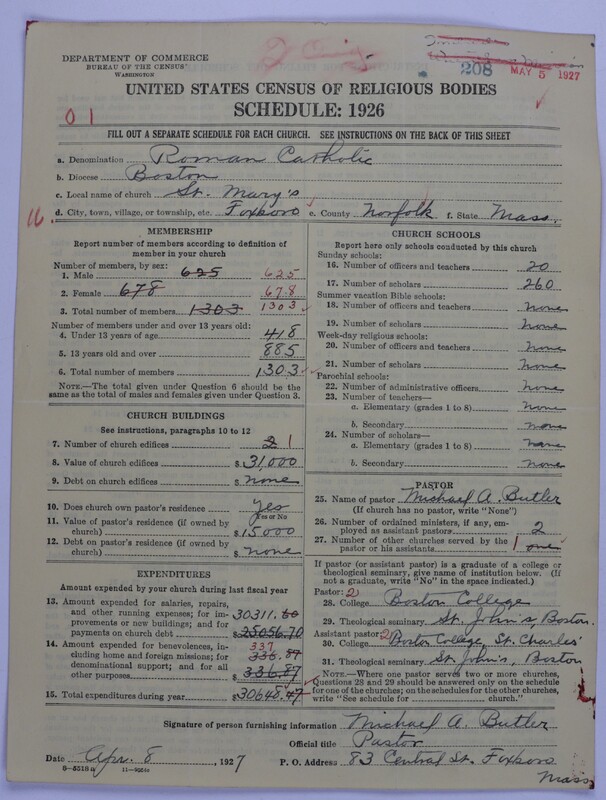 DEPARTMENT OF COMMERCE
BUREAU OF THE CENSUS
WASHINGTON
208
MAY 5 1927
UNITED STATES CENSUS OF RELIGIOUS BODIES
SCHEDULE: 1926
0 1
FILL OUT A SEPARATE SCHEDULE FOR EACH CHURCH. SEE INSTRUCTIONS ON THE BACK OF THIS SHEET
a. Denomination Roman Catholic
b. Diocese Boston
c. Local name of church St. Mary's
d. City, town, village, or township, etc. Foxboro e. County Norfolk f. State Mass.
MEMBERSHIP
Report number of members according to definition of
member in your church
Number of members, by sex:
1. Male 625 625
2. Female 678 678
3. Total number of members 1303 1303
Number of members under and over 13 years old:
4. Under 13 years of age 418
5. 13 years old and over 885
6. Total number of members 1303
NOTE.—The total given under Question 6 should be
the same as the total of males and females given under Question 3.
CHURCH BUILDINGS
See instructions, paragraphs 10 to 12
7. Number of church edifices 2 1
8. Value of church edifices $31,000
9. Debt on church edifices $None
10. Does church own pastor's residence Yes
Yes or No
11. Value of pastor's residence (if owned by
church) $15000
12. Debt on pastor's residence (if owned by
church) $None
EXPENDITURES
Amount expended by your church during last fiscal year
13. Amount expended for salaries, repairs,
and other running expenses; for im-
provements or new buildings; and for
payments on church debt 30311.60
$25056.70
14. Amount expended for benevolences, in-
cluding home and foreign missions; for
denominational support; and for all
other purposes 337
336.87
$336.87
15. Total expenditures during year $30648.47
CHURCH SCHOOLS
Report here only schools conducted by this church
Sunday schools:
16. Number of officers and teachers 20
17. Number of scholars 260
Summer vacation Bible schools:
18. Number of officers and teachers None
19. Number of scholars None
Week-day religious schools:
20. Number of officers and teachers None
21. Number of scholars None
Parochial schools:
22. Number of administrative officers None
23. Number of teachers—
a. Elementary (grades 1 to 8) None
b. Secondary None
24. Number of scholars—
a. Elementary (grades 1 to 8) None
b. Secondary None
PASTOR
25. Name of pastor Michael A. Butler
(If church has no pastor, write "None")
26. Number of ordained ministers, if any, em-
ployed as assistant pastors 2
27. Number of other churches served by the
pastor or his assistants 1 one
If pastor (or assistant pastor) is a graduate of a college or
theological seminary, give name of institution below. (If
not a graduate, write "No" in the space indicated.)
Pastor: 2
28. College Boston College
29. Theological seminary St. John's, Boston.
Assistant pastor: 2
30. College Boston College, St. Charles'
31. Theological seminary St. John's, Boston
NOTE.—Where one pastor serves two or more churches,
Questions 28 and 29 should be answered only on the schedule
for one of the churches; on the schedules for the other churches,
write "See schedule for church."
Signature of person furnishing information Michael A. Butler
Official title Pastor
Date Apr. 8, 1927 P. O. Address 83 Central St. Foxboro
Mass.